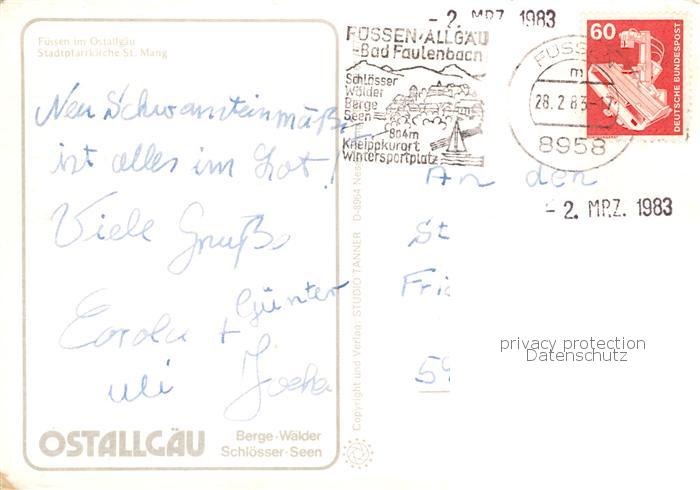 - 2. MRZ. 1983
Füssen im Ostallgäu
Stadtpfarrkirche St. Mang
FÜSSEN-ALLGÄU
-Bad Faulenbach
Schlösser
Wälder
Berge
Seen
804m
Kneippkurort
Wintersportplatz
FÜSSEN
m
28.2.83-17
8958
60
DEUTSCHE BUNDESPOST
Neu Schwansteinmäßig
ist alles im Lot!
Viele Grüße
Carola + Günter
Uli Jocha
An den
- 2. MRZ. 1983
St
Fri
59
privacy protection
Datenschutz
Copyright und Verlag: STUDIO TANNER · D-8964 Nes
OSTALLGÄU
Berge·Wälder
Schlösser·Seen